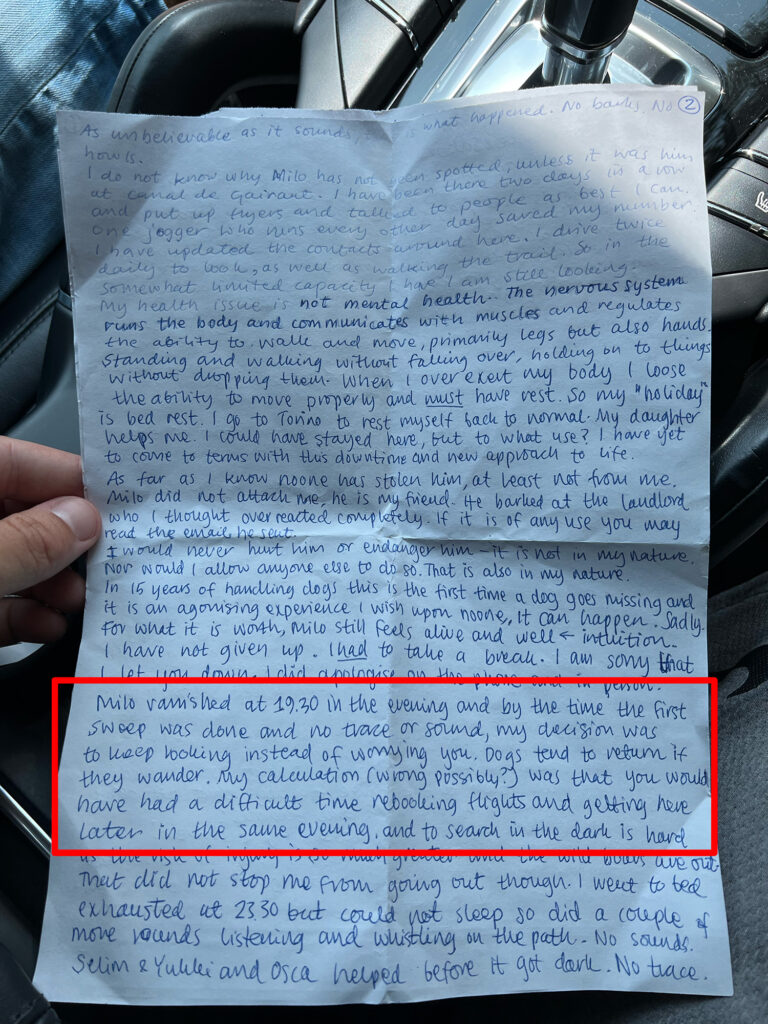 As unbelievable as it sounds, is what happened. No barks, No ②
howls.
I do not know why Milo has not been spotted, unless it was him
at canal de Gairaut. I have been there two days in a row
and put up flyers and talked to people as best I can.
One jogger who runs every other day saved my number.
I have updated the contacts around here. I drive twice
daily to look, as well as walking the trail. So in the
somewhat limited capacity I have I am still looking.
My health issue is not mental health. The nervous system
runs the body and communicates with muscles and regulates
the ability to walk and move, primarily legs but also hands.
Standing and walking without falling over, holding on to things
without dropping them. When I over exert my body I loose
the ability to move properly and must have rest. So my "holiday"
is bed rest. I go to Torino to rest myself back to normal. My daughter
helps me. I could have stayed here, but to what use? I have yet
to come to terms with this downtime and new approach to life.
As far as I know noone has stolen him, at least not from me.
Milo did not attack me, he is my friend. He barked at the landlord
who I thought overreacted completely. If it is of any use you may
read the email he sent.
I would never hurt him or endanger him - it is not in my nature.
Nor would I allow anyone else to do so. That is also in my nature.
In 15 years of handling dogs this is the first time a dog goes missing and
it is an agonising experience I wish upon noone. It can happen. Sadly.
For what it is worth, Milo still feels alive and well ← intuition.
I have not given up. I had to take a break. I am sorry that
I let you down. I did apologise on the phone and in person.
Milo vanished at 19.30 in the evening and by the time the first
sweep was done and no trace or sound, my decision was
to keep looking instead of worrying you. Dogs tend to return if
they wander. My calculation (wrong possibly?) was that you would
have had a difficult time rebooking flights and getting here
later in the same evening, and to search in the dark is hard
as the risk of injury is so much greater and the wild boars are out.
That did not stop me from going out though. I went to bed
exhausted at 23.30 but could not sleep so did a couple of
more rounds listening and whistling on the path. No sounds.
Selim & Yukki and Osca helped before it got dark. No trace.